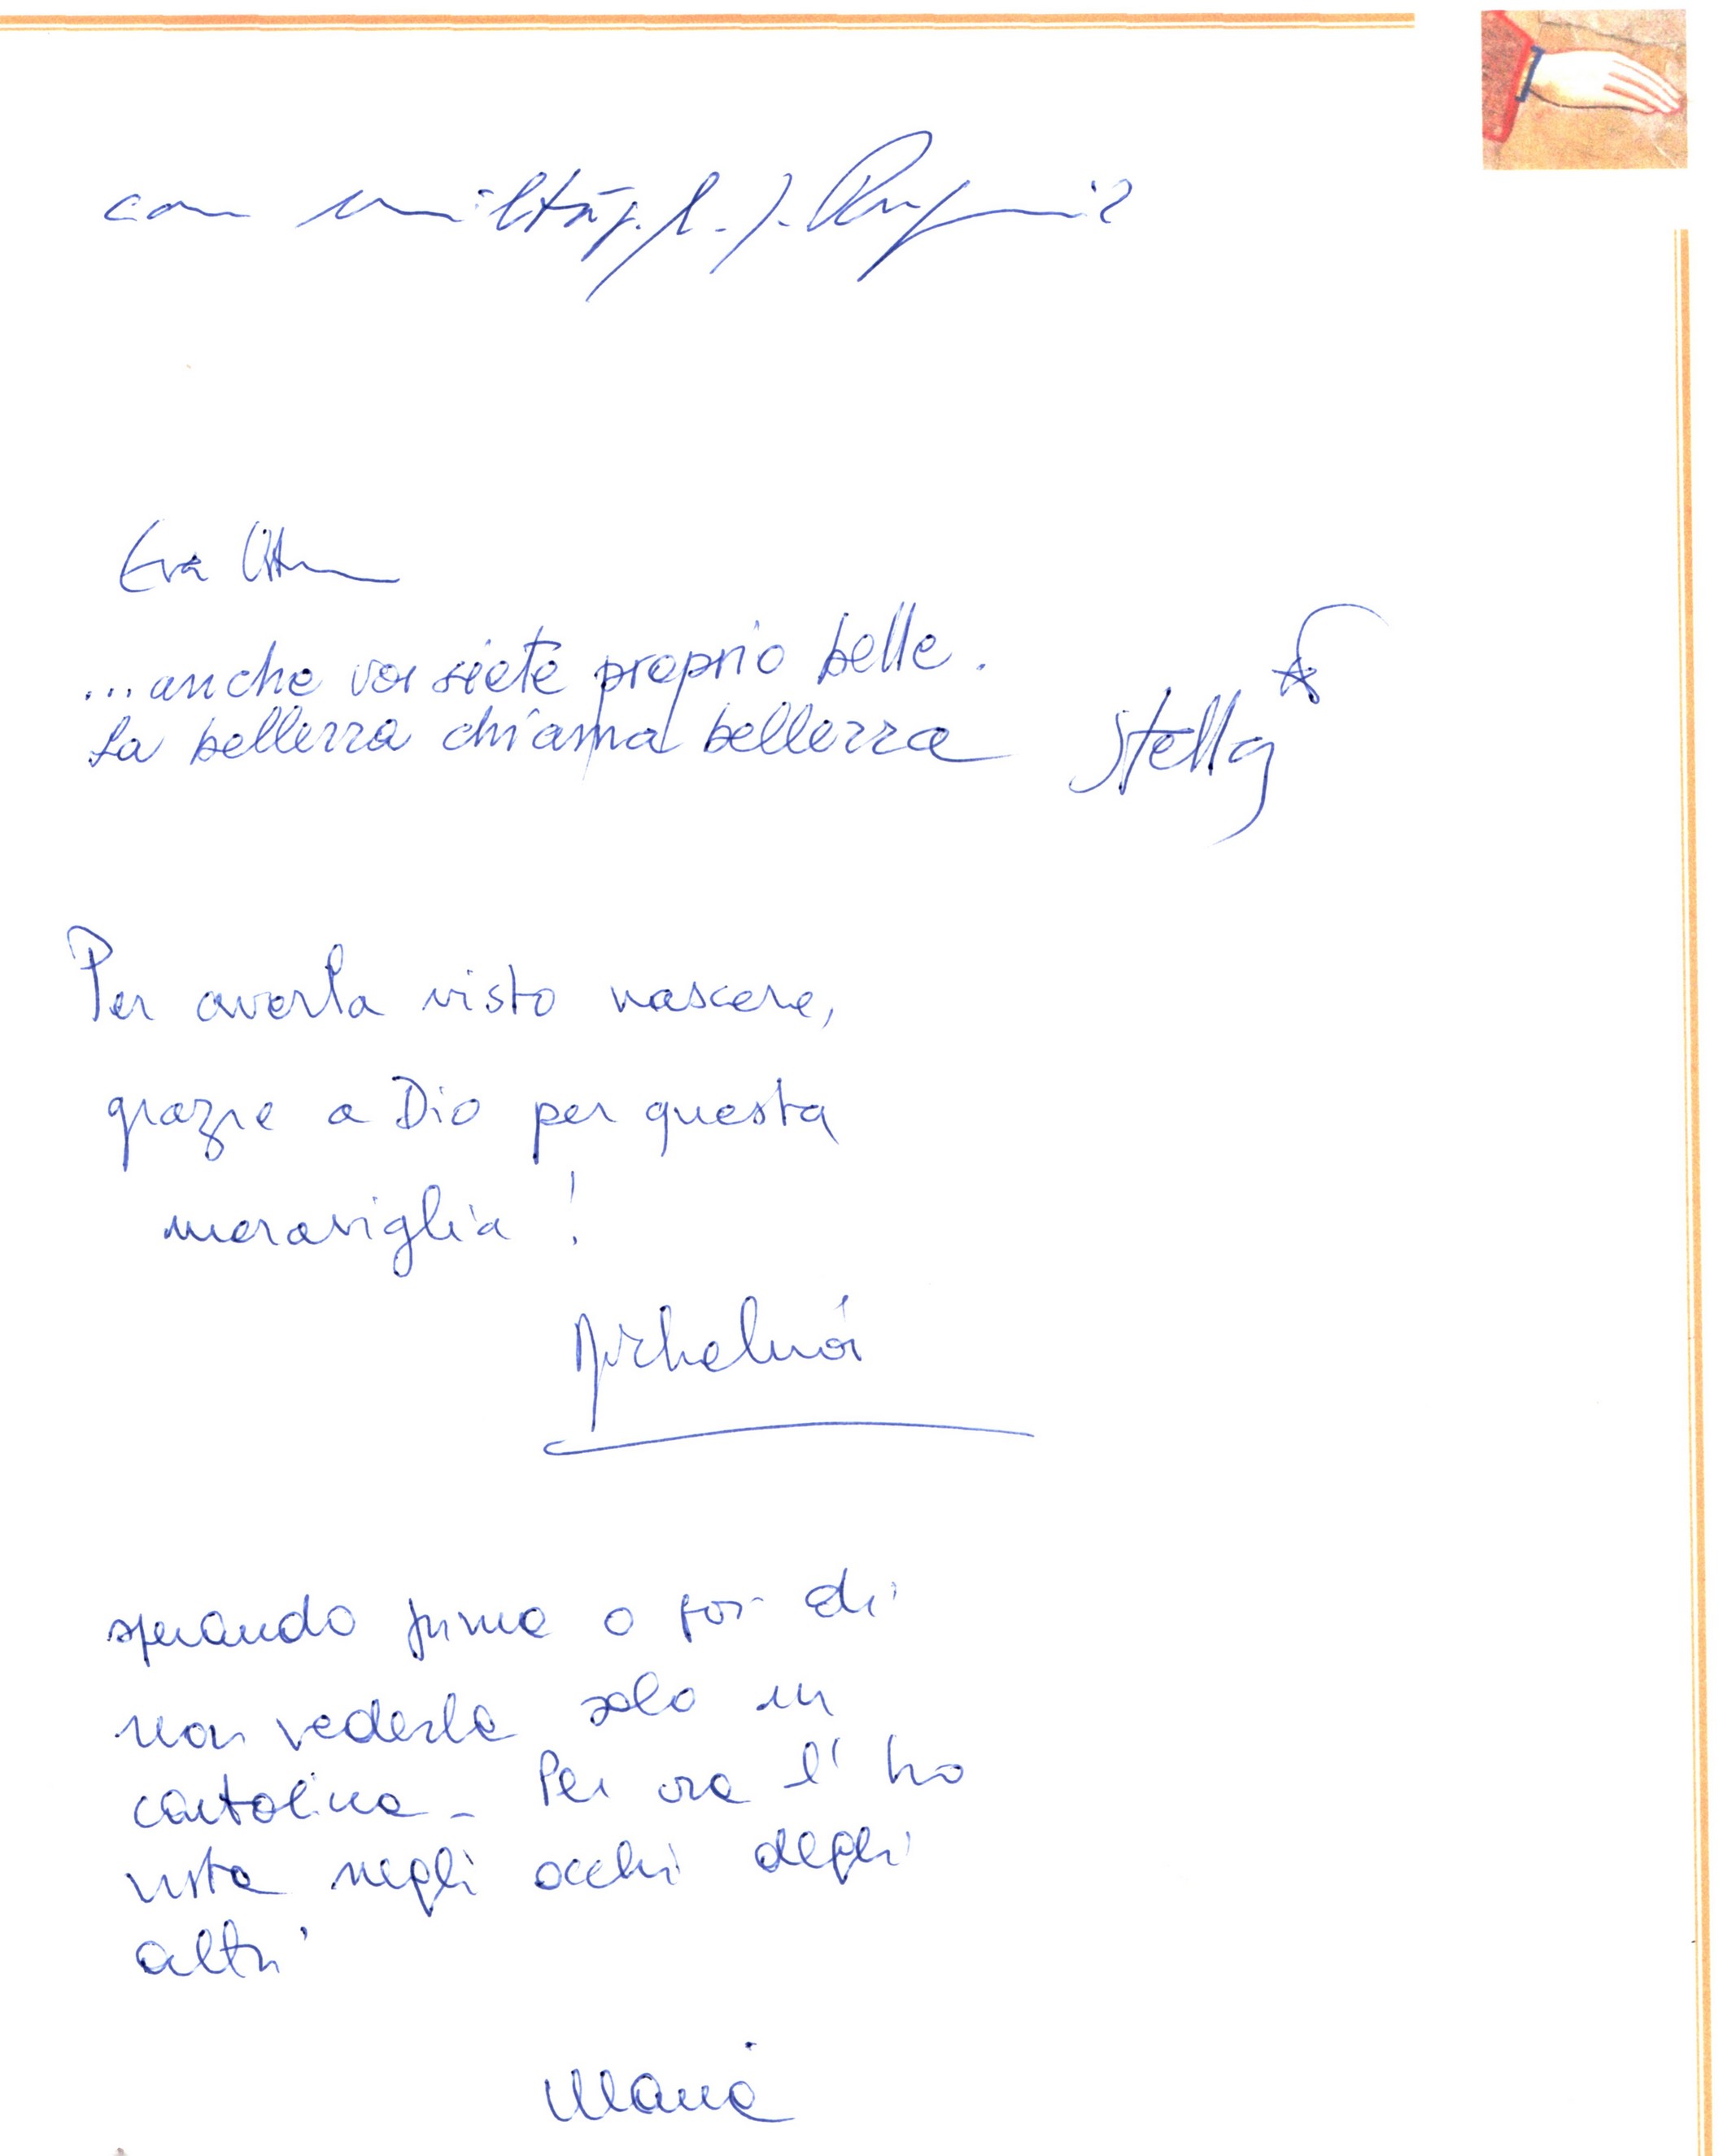 con umiltà
Eva
...anche voi siete proprio belle.
La bellezza chiama bellezza
Stella
Per averla visto nascere,
grazie a Dio per questa
meraviglia !
sperando prima o poi di
non vederla solo in
cartolina - Per ora l'ho
vista negli occhi degli
altri
Maria